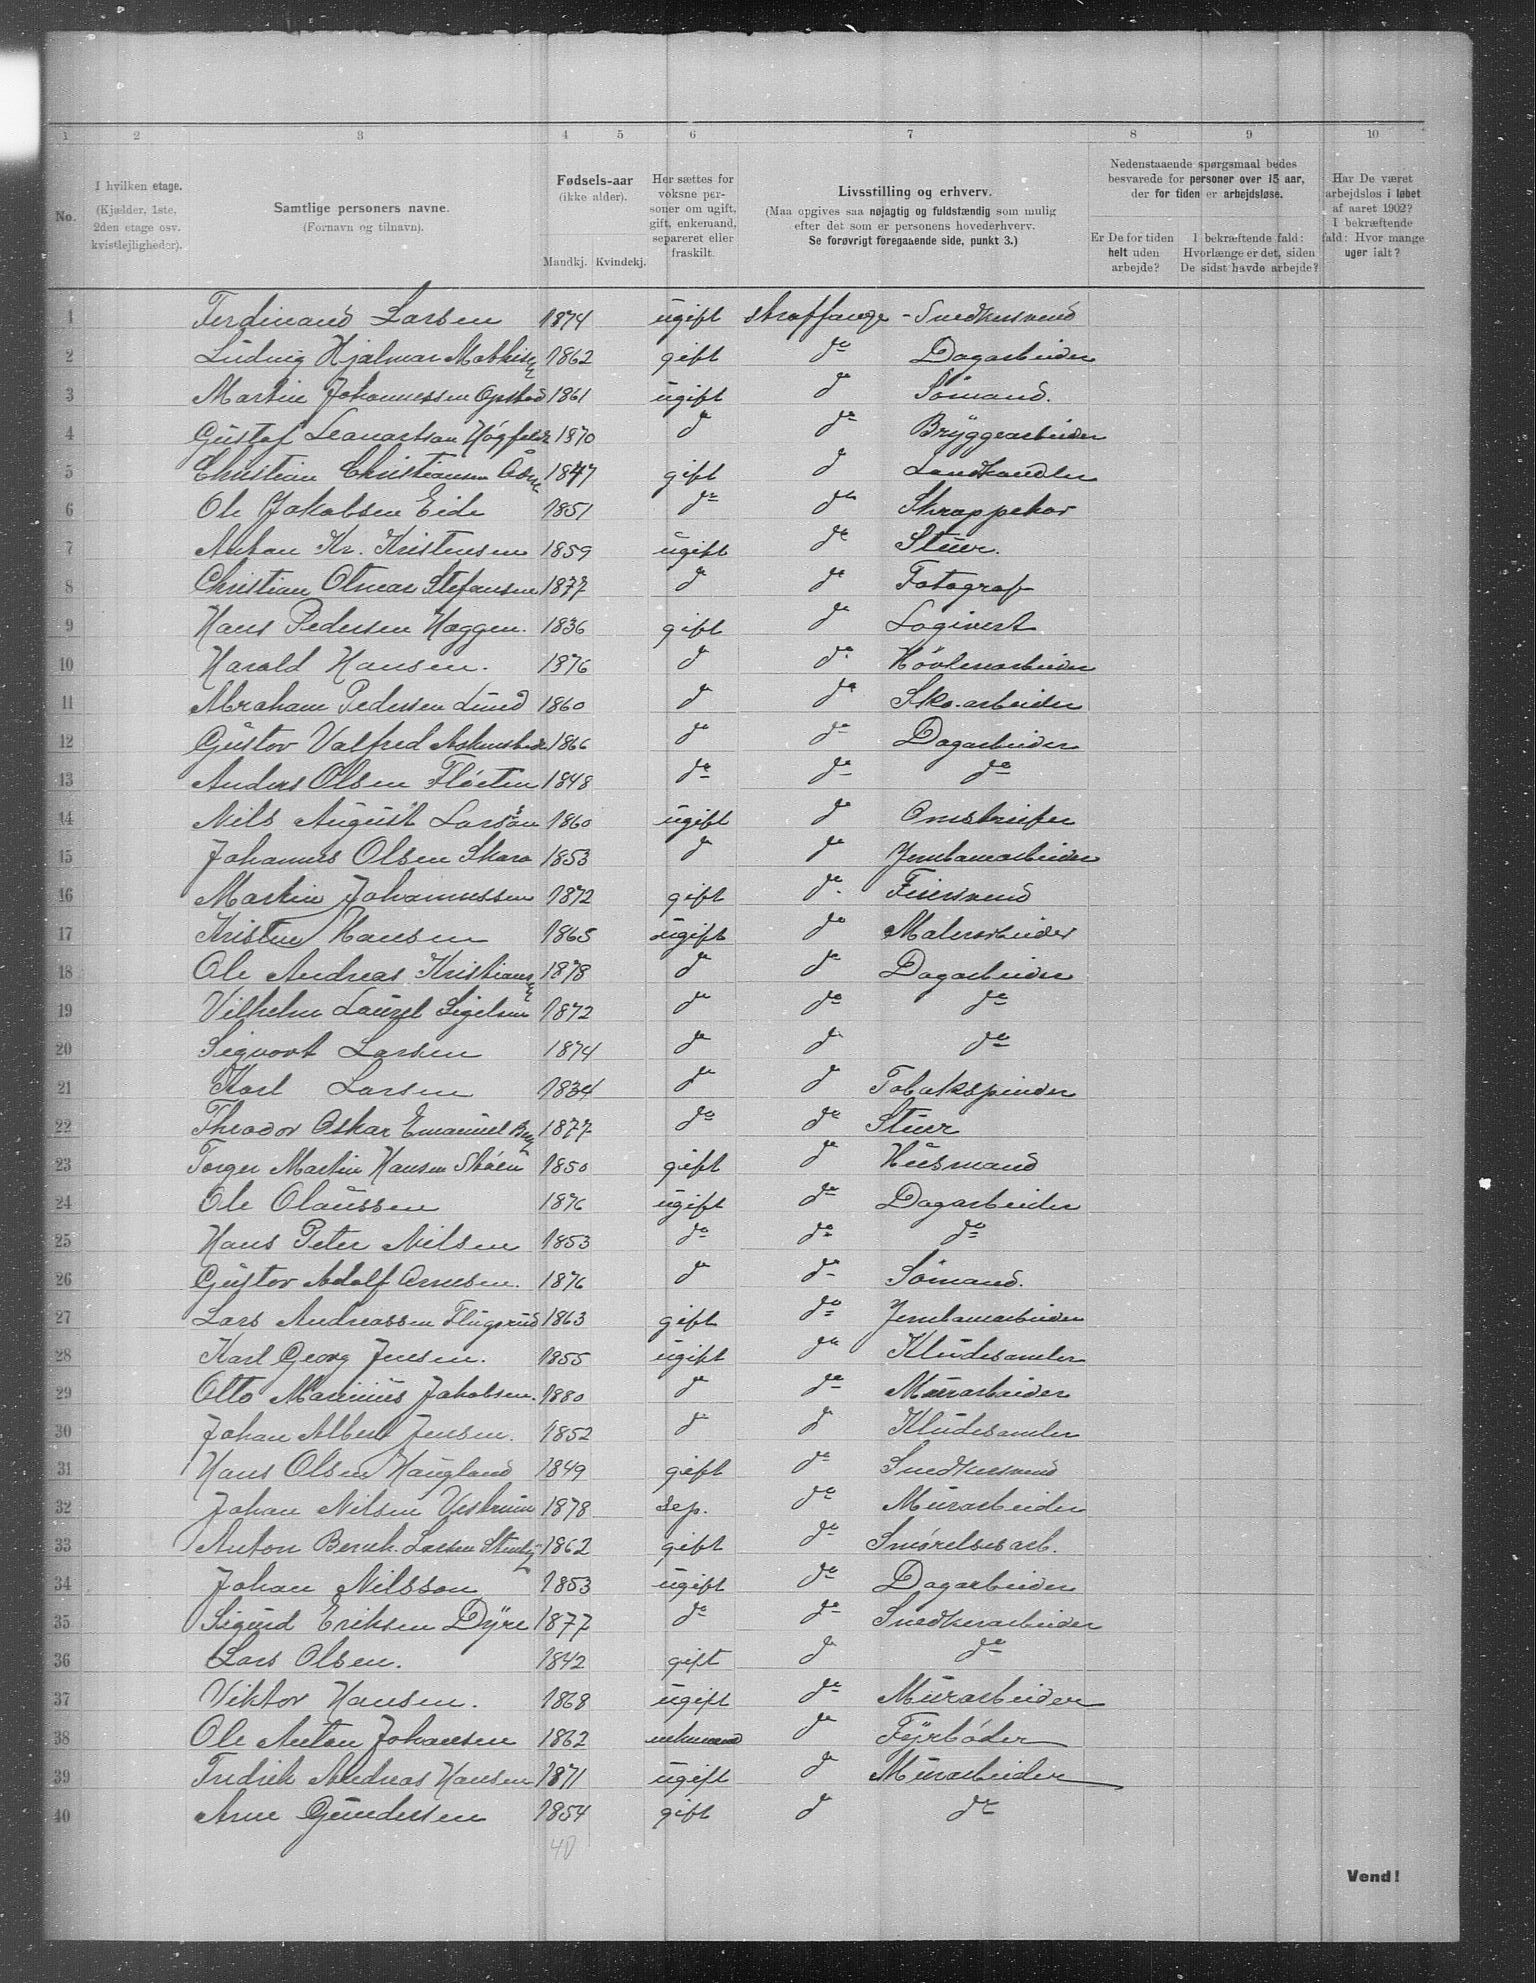 1 2 3 4 5 6 7 8 9 10
No.
I hvilken etage.
(Kjælder, 1ste,
2den etage osv.
kvistlejligheder).
Samtlige personers navne.
(Fornavn og tilnavn).
Fødsels-aar
(ikke alder).
Mandkj. Kvindekj.
Her sættes for
voksne per-
soner om ugift,
gift, enkemand,
separeret eller
fraskilt.
Livsstilling og erhverv.
(Maa opgives saa nøjagtig og fuldstændig som mulig
efter det som er personens hovederhverv.
Se forøvrigt foregaaende side, punkt 3.)
Nedenstaaende spørgsmaal bedes
besvarede for personer over 15 aar,
der for tiden er arbejdsløse.
Er De for tiden
helt uden
arbejde?
I bekræftende fald:
Hvorlænge er det, siden
De sidst havde arbejde?
Har De været
arbejdsløs i løbet
af aaret 1902?
I bekræftende
fald: Hvor mange
uger ialt?
1 Ferdinand Larsen 1874 ugift straffange - Snedkersvend
2 Ludvig Hjalmar Mathisen 1862 gift do Dagarbeider
3 Martin Johannessen Opstad 1861 ugift do Sömand.
4 Gustaf Leanartsan Högfeldt 1870 do do Bryggearbeider
5 Christian Christiansen 1847 gift do Landhandler
6 Ole Jakobsen Eide 1851 do do Skrappehar
7 Anton Kr. Kristensen 1859 ugift do Stuer.
8 Christian Otmar Stefansen 1877 do do Fotograf
9 Hans Pedersen Haggen. 1836 gift do Logivert
10 Harald Hansen. 1876 do do Hövlerarbeider
11 Abraham Pedersen Lund 1860 do do Sko-arbeider
12 Gustav Valfred 1866 do do Dagarbeider
13 Anders Olsen Flöeten 1848 do do do
14 Nils August Larsson 1860 ugift do Omstreifer
15 Johannes Olsen Skara 1853 do do Jernbanearbeider
16 Martin Johannessen 1872 gift do Feiersvend
17 Kristen Hansen 1865 ugift do Malerarbeider
18 Ole Andreas Kristiansen 1878 do do Dagarbeider
19 Vilhelm Laurel Sigelsen 1872 do do do
20 Sigvart Larsen 1874 do do do
21 Karl Larsen 1834 do do Tobakspinder
22 Theodor Oskar Emanuel Berg 1877 do do Stuer
23 Torger Martin Hansen Sköien 1850 gift do Husmand
24 Ole Olaussen 1876 ugift do Dagarbeider
25 Hans Peter Nilsen 1853 do do do
26 Gustav Adolf Arnesen. 1876 do do Sömand.
27 Lars Andreassen Flugsrud 1863 gift do Jernbanearbeider
28 Karl Georg Jensen. 1855 ugift do Kludesamler
29 Otto Marinius Jakobsen. 1880 do do Murarbeider
30 Johan Albert Jensen. 1852 do do Kludesamler
31 Hans Olsen Haugland 1849 gift do Snedkersvend
32 Johan Nilsen Vestrum 1878 sep. do Murarbeider
33 Anton Bernh. Larsen 1862 gift do Smörelsesarb.
34 Johan Nilsson 1853 ugift do Dagarbeider
35 Sigurd Eriksen Dyre 1877 do do Snedkerarbeider
36 Lars Olsen. 1842 gift do do
37 Viktor Hansen. 1868 ugift do Murarbeider
38 Ole Anton Johansen 1862 enkemand do Fyrböder
39 Fredrik Andreas Hansen 1871 ugift do Murarbeider
40 Arne Gundersen 1854 gift do do
40
Vend!